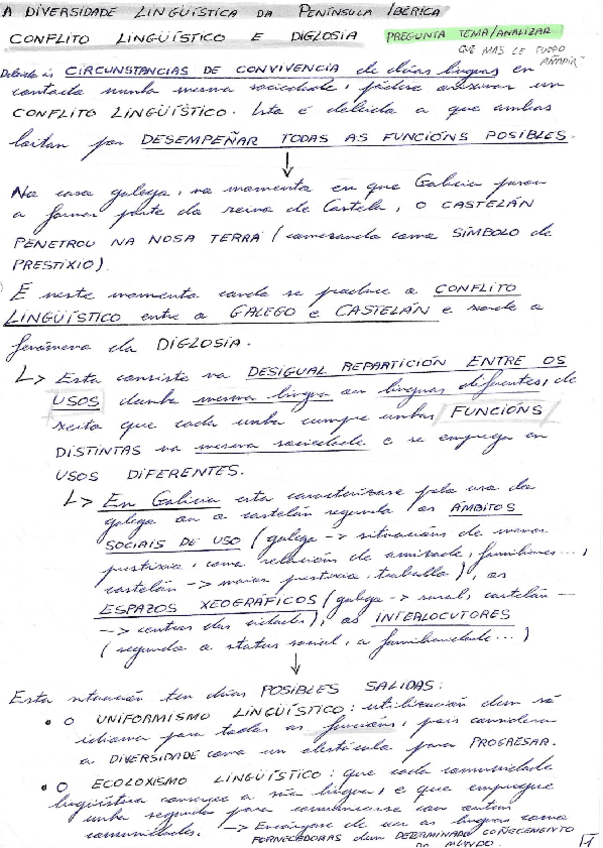 A DIVERSIDADE LINGÜÍSTICA DA PENÍNSULA IBÉRICA
CONFLITO LINGÜÍSTICO E DIGLOSIA PREGUNTA TEMA/ANALIZAR
QUE MAS LE PUEDO AÑADIR
Debido ás CIRCUNSTANCIAS DE CONVIVENCIA de dúas linguas en
contacto nunha mesma sociedade, pódese orixinar un
CONFLITO LINGÜÍSTICO. Isto é debido a que ambas
loitan por DESEMPEÑAR TODAS AS FUNCIÓNS POSIBLES.
↓
No caso galego, no momento en que Galicia pasou
a formar parte do reino de Castela, O CASTELÁN
PENETROU NA NOSA TERRA (comezando como SÍMBOLO de
PRESTIXIO).
É neste momento cando se produce o CONFLITO
LINGÜÍSTICO entre o GALEGO e CASTELÁN e xorde o
fenómeno da DIGLOSIA.
↳ Esta consiste na DESIGUAL REPARTICIÓN ENTRE OS
USOS dunha mesma lingua ou linguas diferentes, de
xeito que cada unha cumpre unhas FUNCIÓNS
DISTINTAS na mesma sociedade e se emprega en
USOS DIFERENTES.
↳ En Galicia esta caracterízase polo uso do
galego ou o castelán segundo os ÁMBITOS
SOCIAIS DE USO (galego -> situacións de menos
prestixio, como relación de amizade, familiares...,
castelán -> maior prestixio, traballo), os
ESPAZOS XEOGRÁFICOS (galego -> rural, castelán --
--> centros das cidades), os INTERLOCUTORES
(segundo o status social, a familiaridade...)
↓
Esta situación ten dúas POSIBLES SALIDAS:
• O UNIFORMISMO LINGÜÍSTICO: utilización dun só
idioma para todas as funcións, pois considera
a DIVERSIDADE como un obstáculo para PROGRESAR.
• O ECOLOXISMO LINGÜÍSTICO: que cada comunidade
lingüística conserve a súa lingua, e que empregue
unha segunda para comunicarse con outras
comunidades. -> Encárgase de ver as linguas como
FORNECEDORAS dun DETERMINADO COÑECEMENTO
DO MUNDO.
1